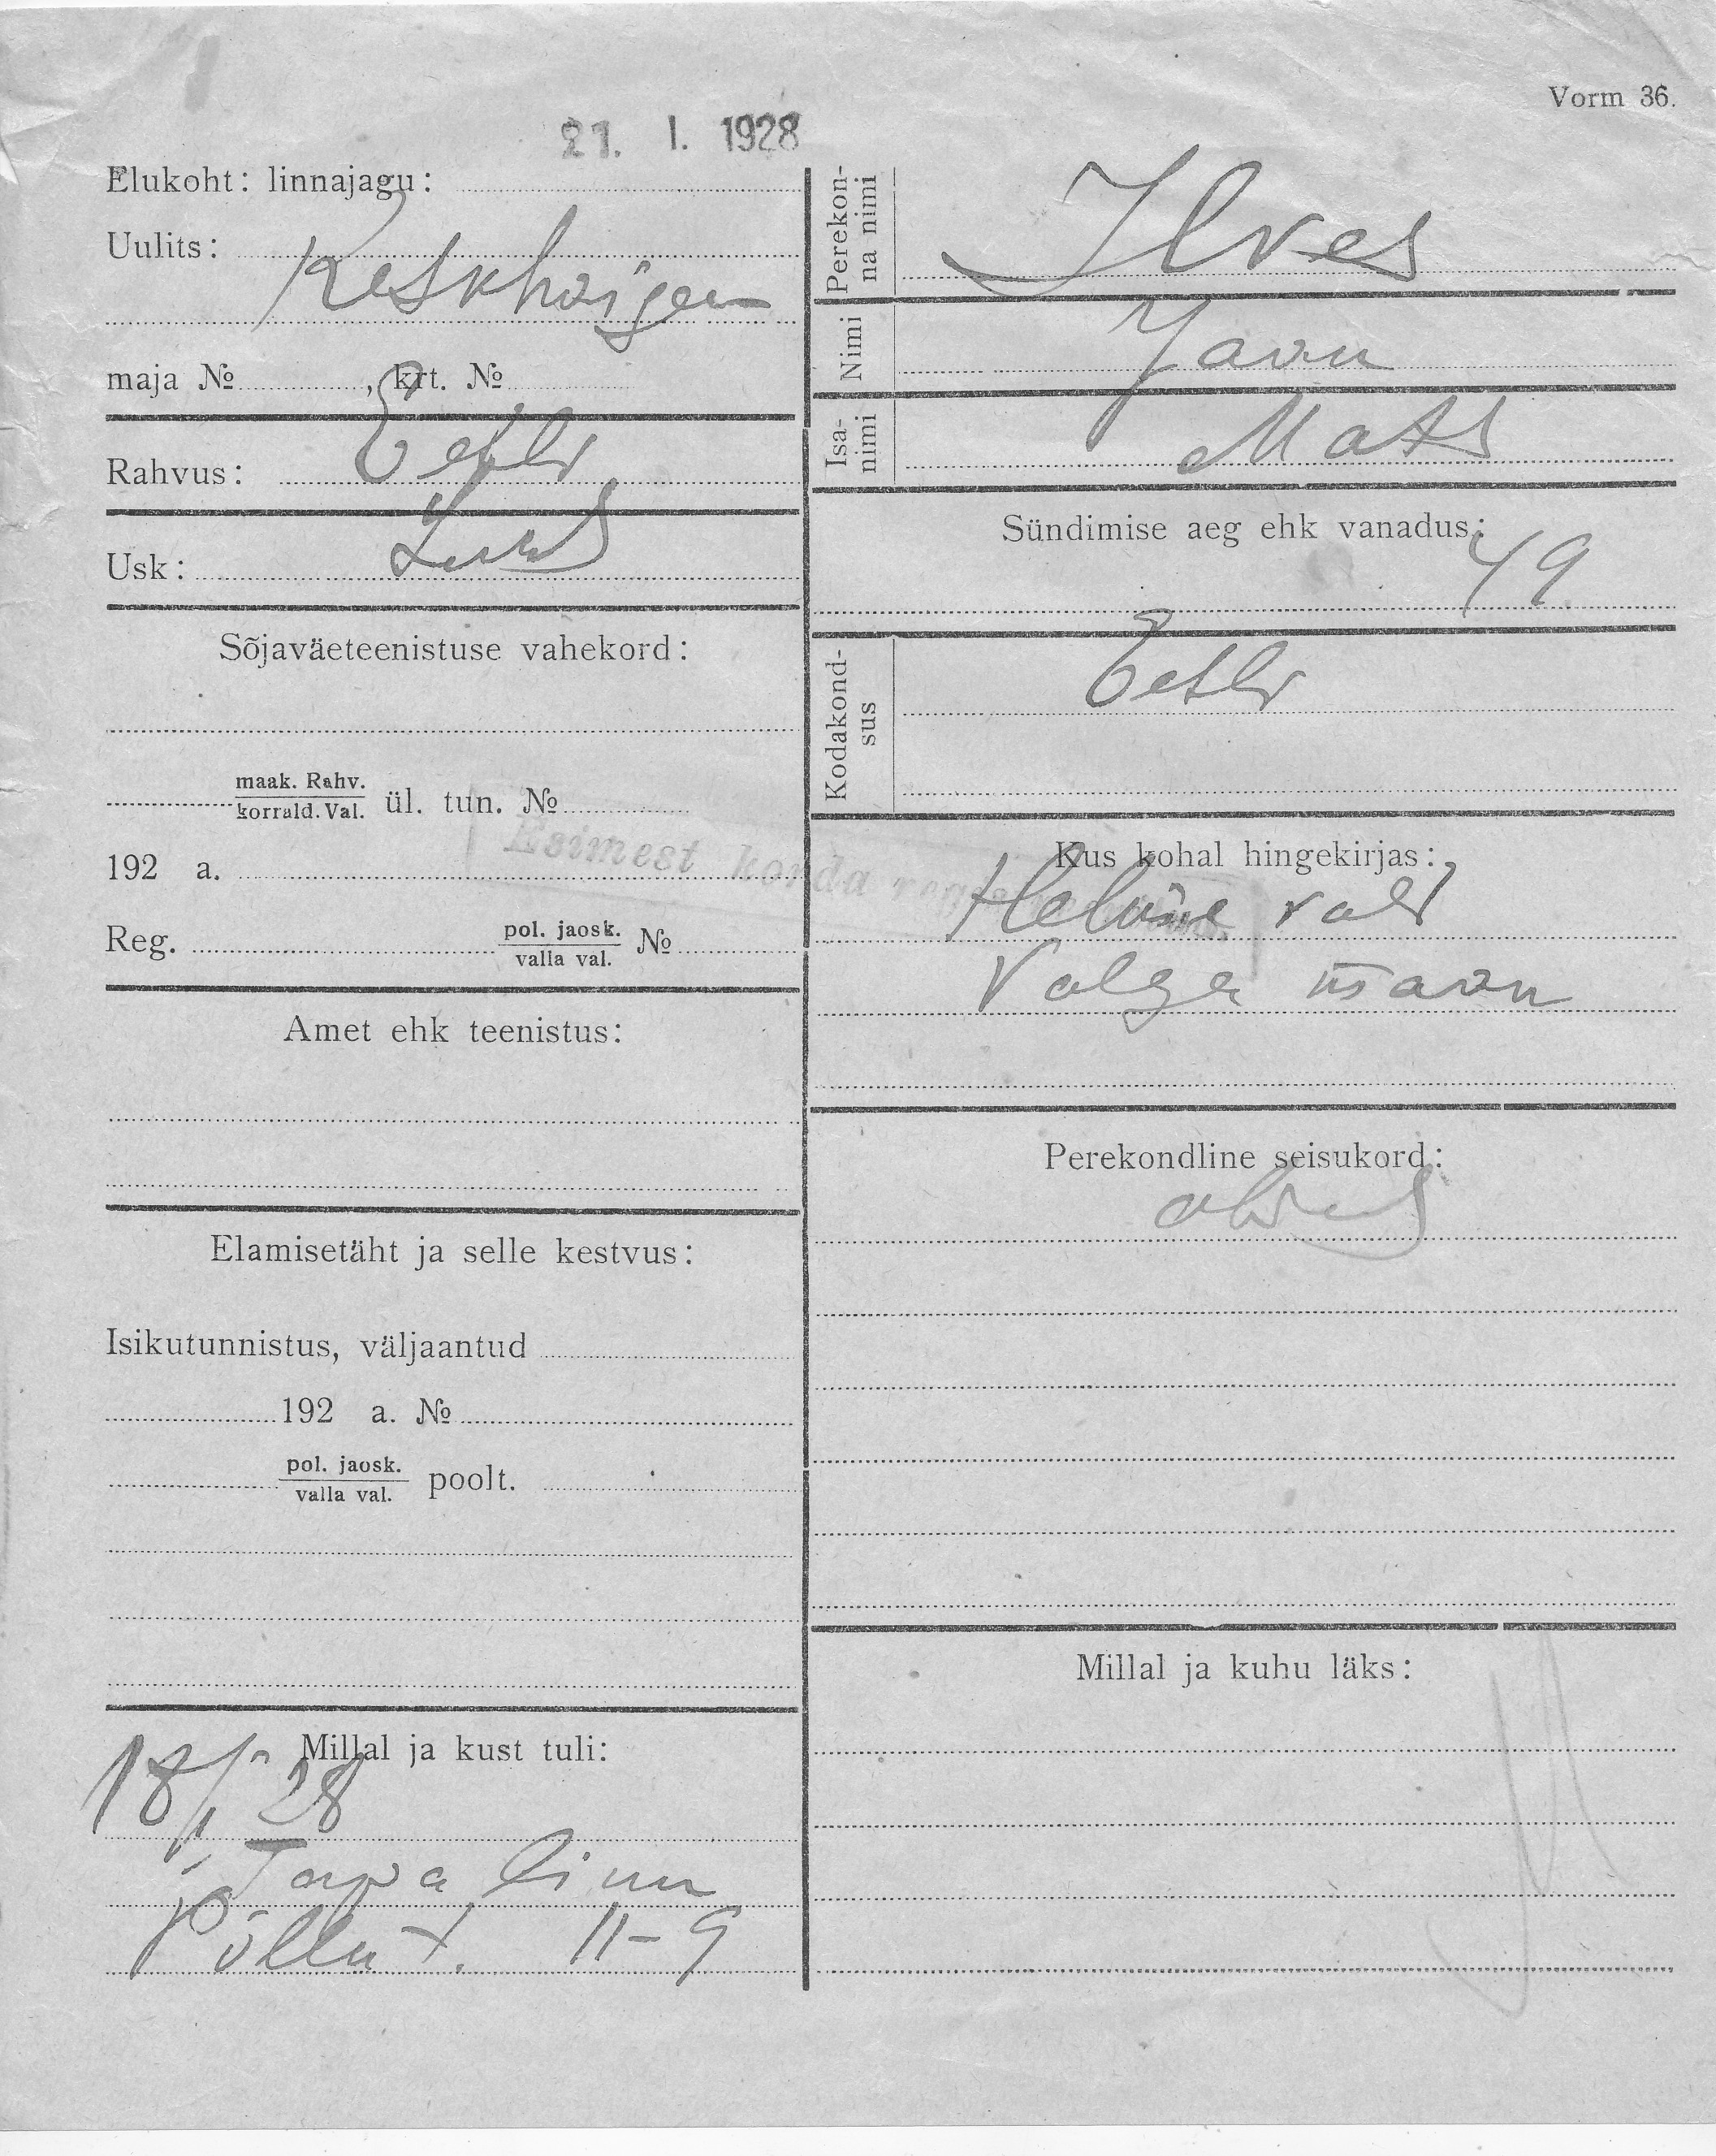 Vorm 36.
21. I. 1928
Elukoht: linnajagu:
Uulits:
Keskhaigem
maja №, krt. №
Rahvus: Eesti
Usk: Luth
Sõjaväeteenistuse vahekord:
maak. Rahv.
korrald. Val. ül. tun. №
192 a.
Esimest korda
Reg. pol. jaosk. №
valla val.
Amet ehk teenistus:
Elamisetäht ja selle kestvus:
Isikutunnistus, väljaantud
192 a. №
pol. jaosk. poolt.
valla val.
Millal ja kust tuli:
18/I 28
Tapa linn
Põllu t. 11-9
Perekon-
na nimi Ilves
Nimi Jaan
Isa-
nimi Mats
Sündimise aeg ehk vanadus:
49
Kodakond-
sus Eesti
Kus kohal hingekirjas:
Helme vald
Valga maan
Perekondline seisukord:
abiel
Millal ja kuhu läks: